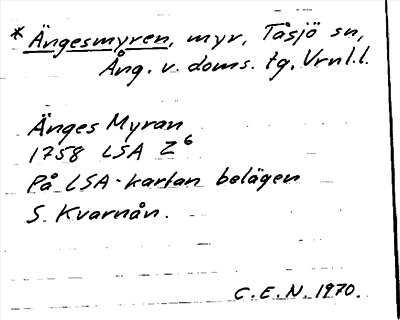 * Ängesmyren, myr, Tåsjö sn,
Ång. v. doms. tg, Vrnl.l.
Änges Myran
1758 LSA Z⁶
På LSA-kartan belägen
S. Kvarnån.
C.E.N. 1970.